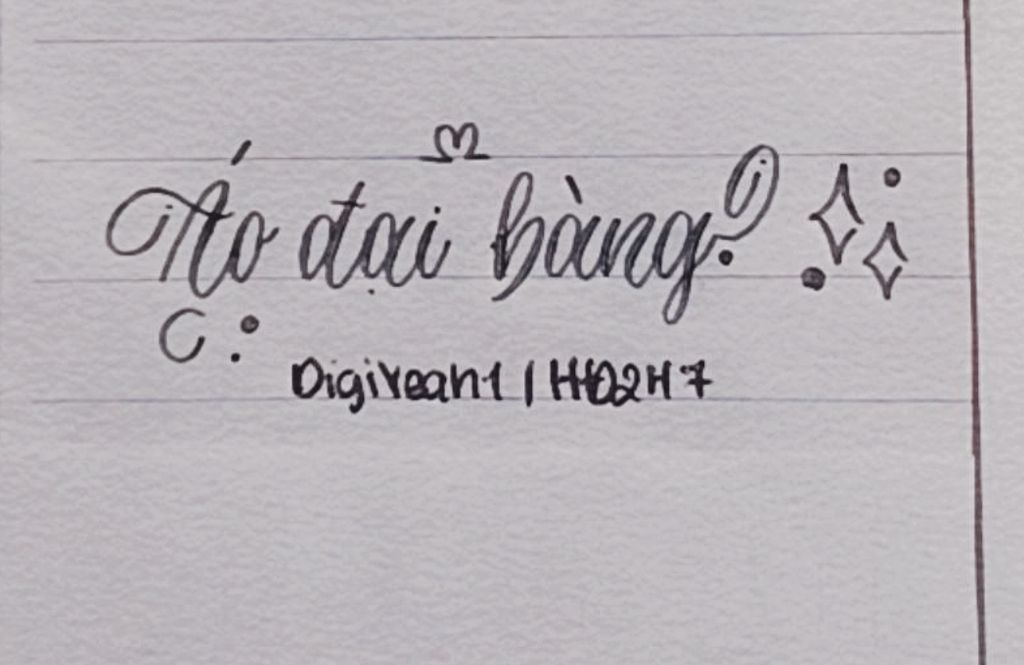 Áo đại bàng?
DigiYeah1 | HD2H7